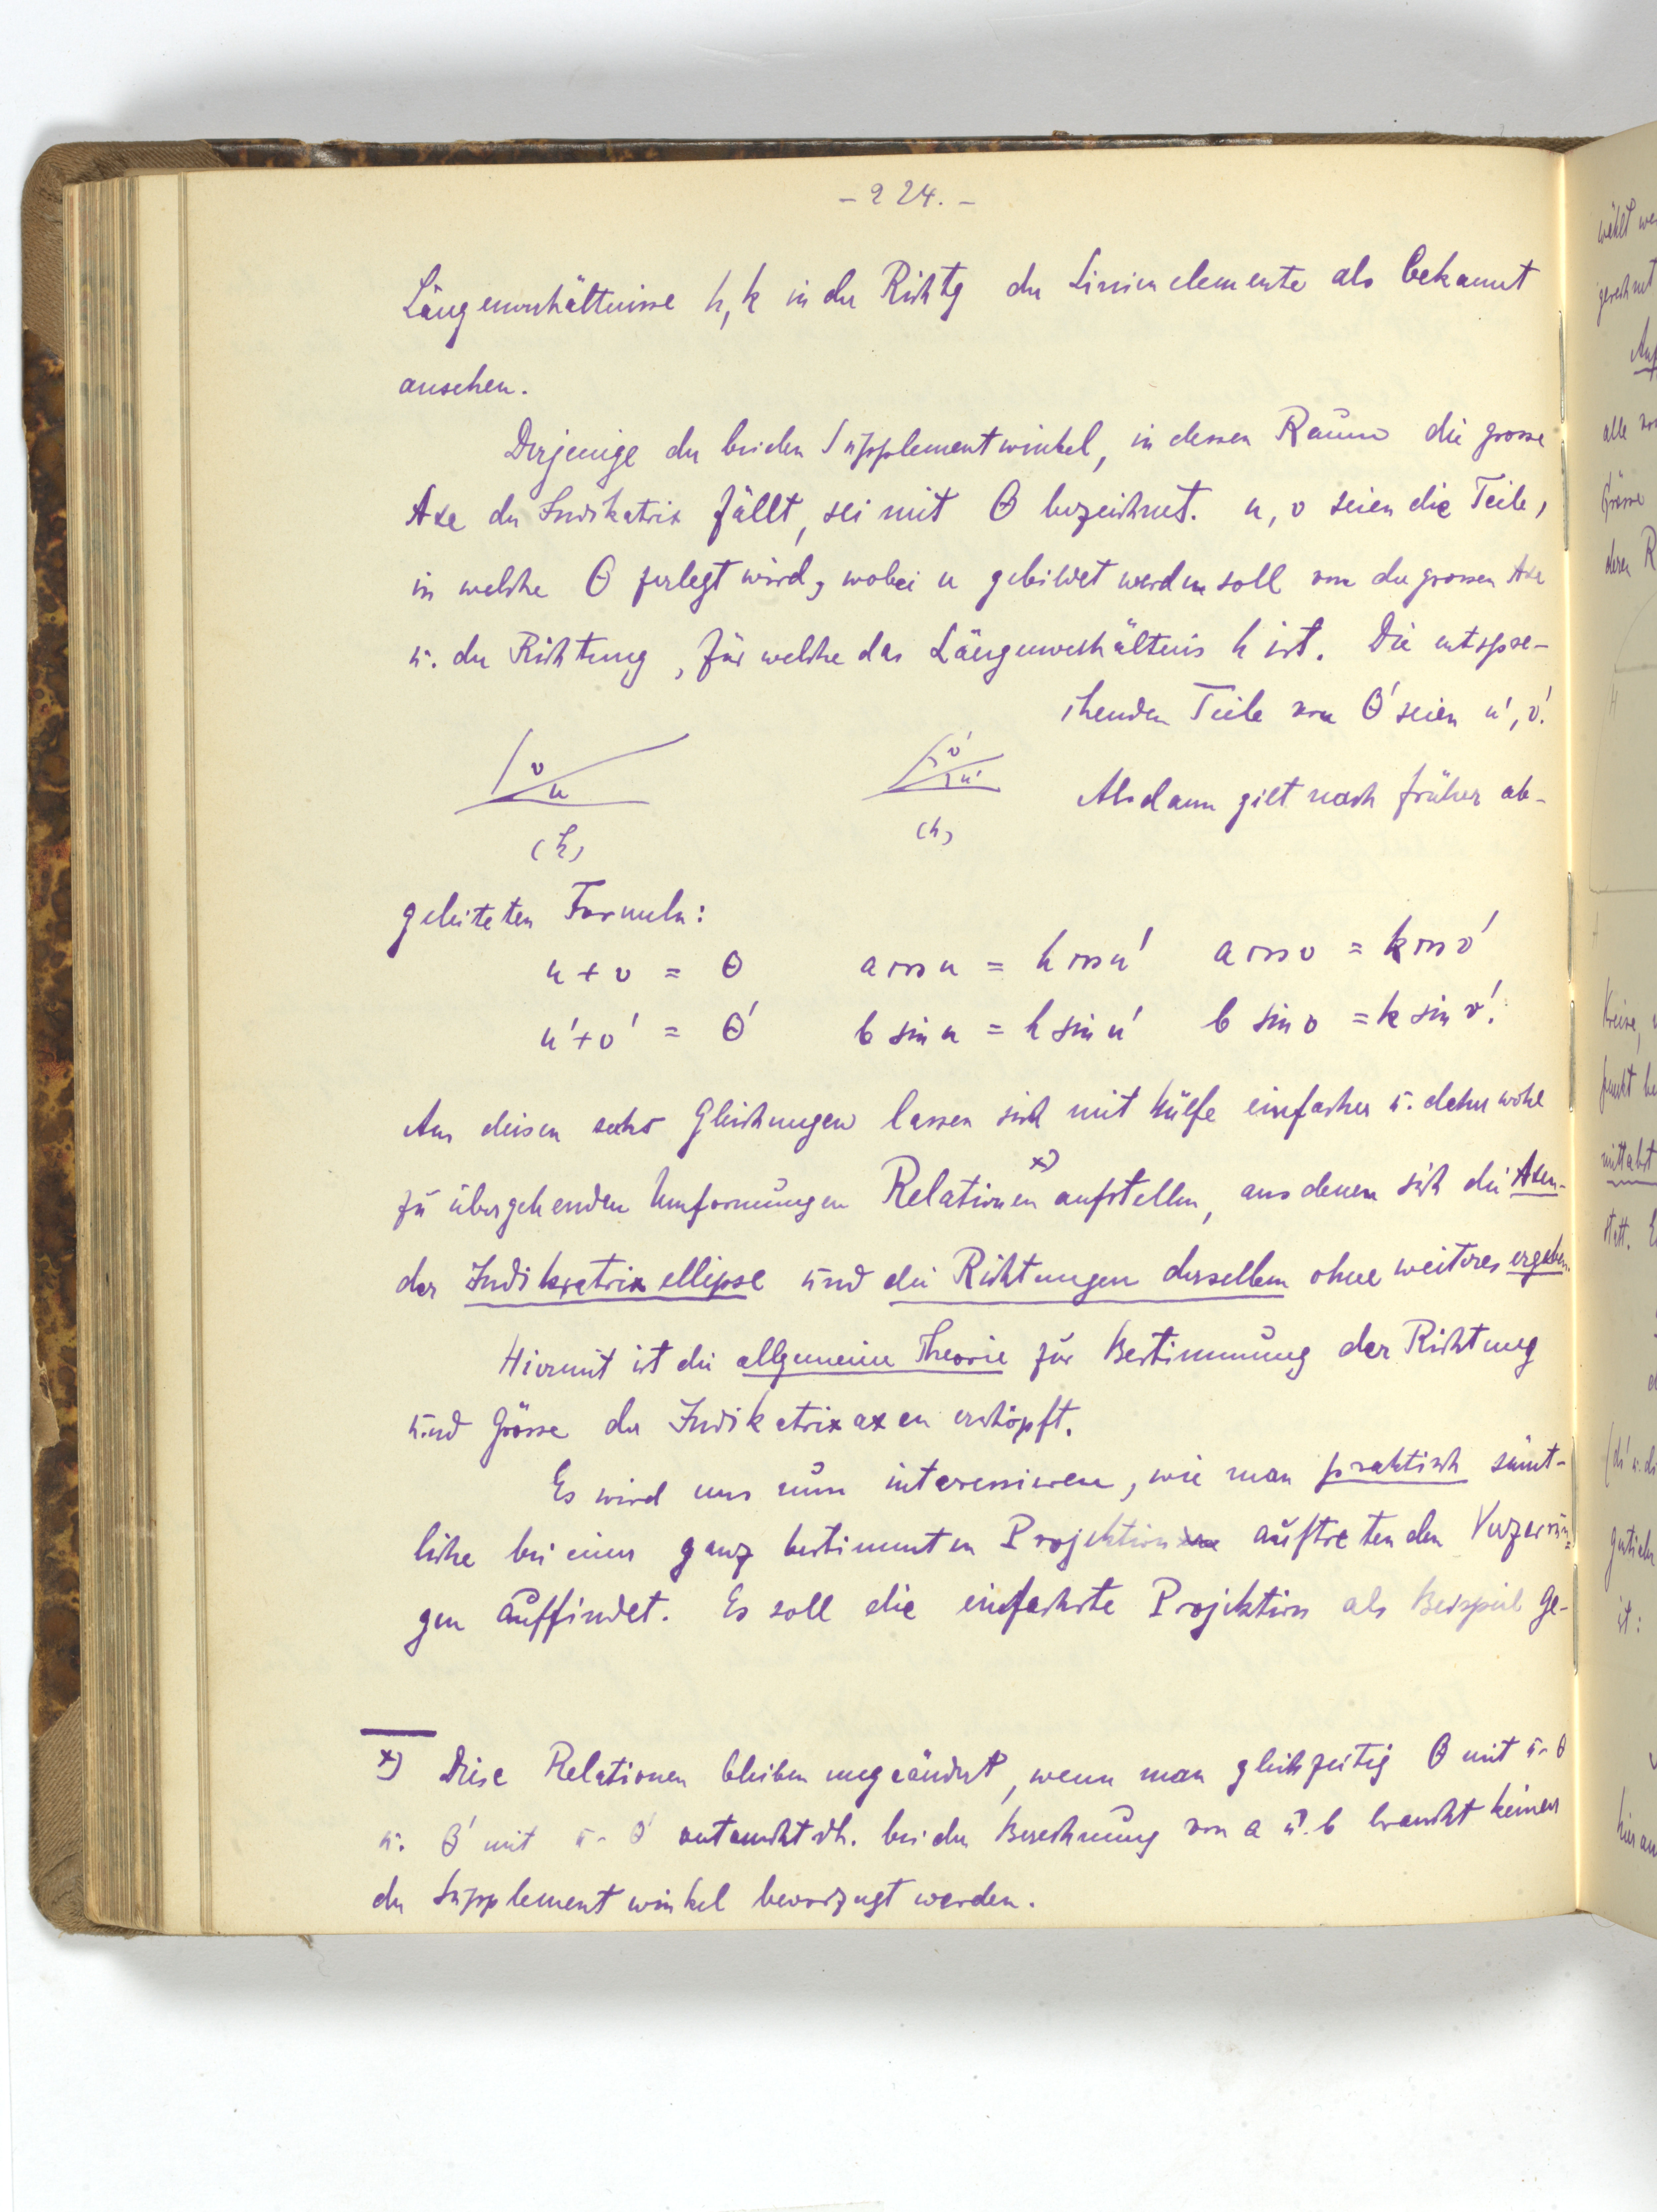 - 224. -
Längenverhältnisse h, k in der Richtg der Linienelemente als bekannt
ansehen.
Derjenige der beiden Supplementwinkel, in dessen Raum die grosse
Axe der Indikatrix fällt, sei mit Θ bezeichnet. u, v seien die Teile,
in welche Θ zerlegt wird, wobei u gebildet werden soll von der grossen Axe
u. der Richtung, für welche das Längenverhältnis h ist. Die entspre-
chenden Teile von Θ' seien u', v'.
v
u
(h)
v'
u'
(h)
Alsdann gilt nach früher ab-
geleiteten Formeln:
u + v = Θ a cos u = h cos u' a cos v = k cos v'
u' + v' = Θ' b sin u = h sin u' b sin v = k sin v'.
Aus diesen sechs Gleichungen lassen sich mit Hülfe einfacher u. daher wohl
zu übergehenden Umformungen Relationen x) aufstellen, aus denen sich die Axen-
der Indikatrixellipse und die Richtungen derselben ohne weiteres ergeben.
Hiermit ist die allgemeine Theorie zur Bestimmung der Richtung
und Grösse der Indikatrixaxen erschöpft.
Es wird uns nun interessieren, wie man praktisch sämt-
liche bei einer ganz bestimmten Projektion auftretenden Verzerrun=
gen auffindet. Es soll die einfachste Projektion als Beispiel ge-
x) Diese Relationen bleiben ungeändert, wenn man gleichzeitig Θ mit π - Θ
u. Θ' mit π - Θ' vertauscht dh. bei der Berechnung von a u. b braucht keiner
der Supplementwinkel bevorzugt werden.